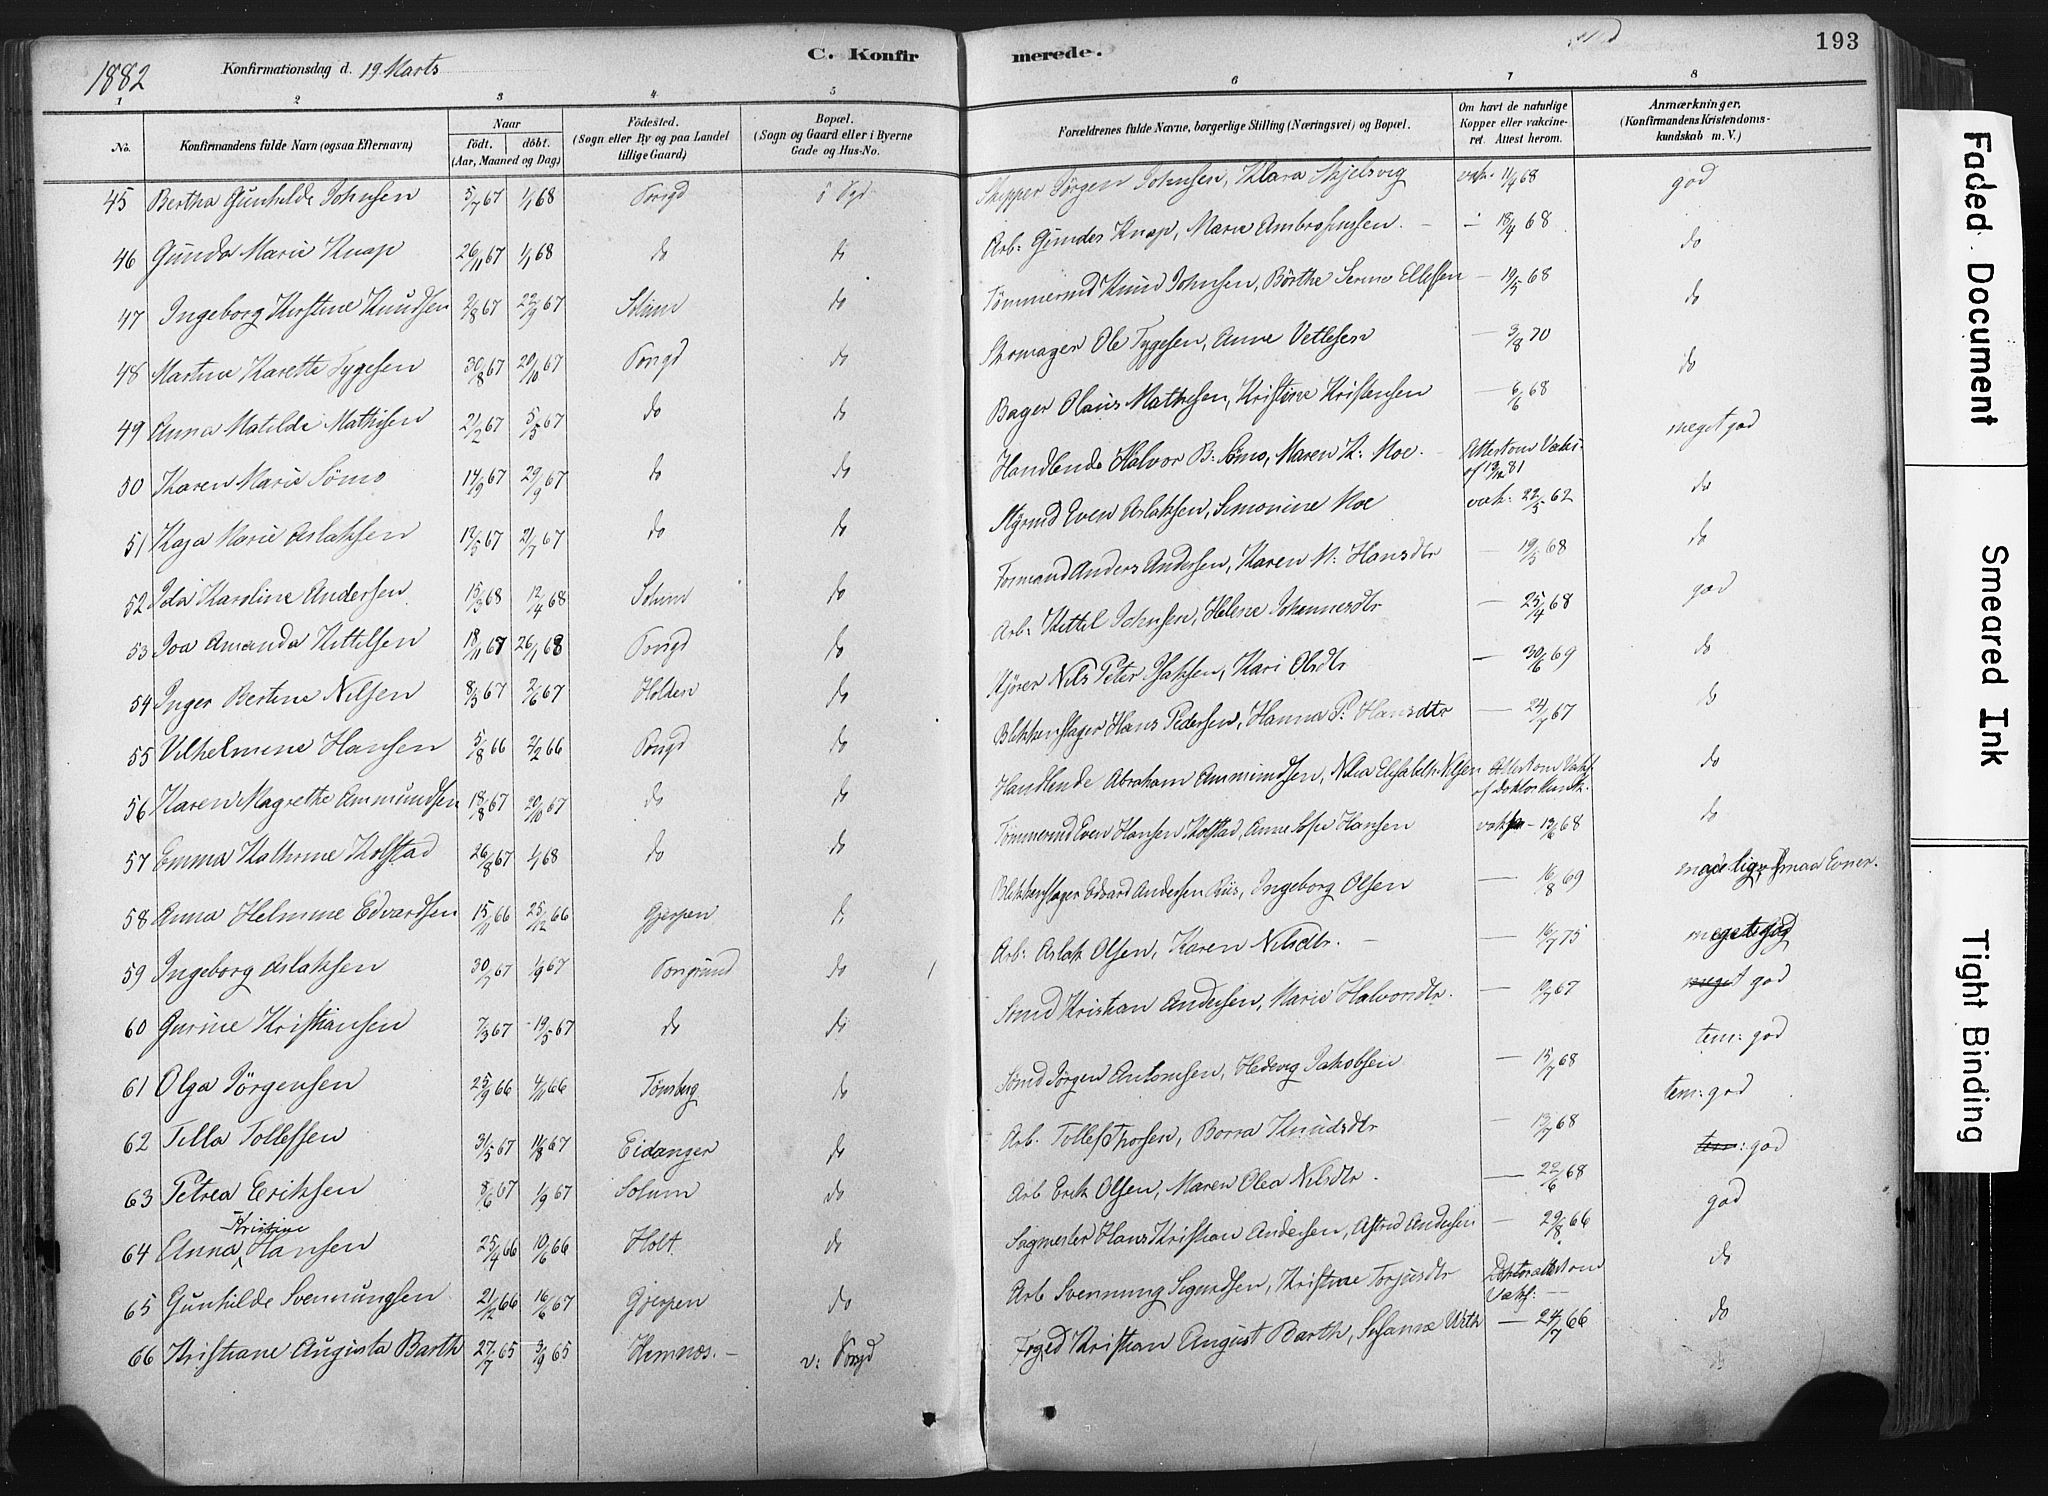 1882 Konfirmationsdag d. 19 Marts C. Konfirmerede. 193
1 2 3 4 5 6 7 8
No. Konfirmandens fulde Navn (ogsaa Efternavn) Naar födt. döbt. (Aar, Maaned og Dag) Födested. (Sogn eller By og paa Landet tillige Gaard) Bopæl. (Sogn og Gaard eller i Byerne Gade og Hus-No. Forældrenes fulde Navne, borgerlige Stilling (Næringsvei) og Bopæl. Om havt de naturlige Kopper eller vakcineret. Attest herom. Anmærkninger, (Konfirmandens Kristendomskundskab m. V.)
45 Bertha Gunhilde Johnsen 5/7 67 1/1 68 Porsgd Skipper Jörgen Johnsen, Klara Skjelsvig vak. 11/4 68 god
46 Gunda Marie Knap 26/11 67 1/1 68 do do Arb: Gundes Knap, Marie - 18/4 68 do
47 Ingeborg Kirstine Knudsen 2/8 67 22/9 67 Solum do Tömmermd Knud Johnsen, Börthe Serine Ellefsen - 19/5 68 do
48 Martine Karette Tygesen 30/8 67 20/10 67 Porsgd do Skomager Ole Tygesen, Anne Vetlesen - 3/8 70 do
49 Anna Matilde Mathisen 21/2 67 5/5 67 do do Bager Olaus Mathesen, Kristine Kristensen - 6/6 68 meget god
50 Karen Marie Sömo 14/9 67 29/9 67 do do Handlende Halvor B: Sömo, Maren K: Moe. Attest om Vaks. af 13/12 81 do
51 Kaja Marie Aslaksen 12/5 67 21/7 67 do do Styrmd Even Aslaksen, Simonine Moe vak: 22/5 62 do
52 Ida Karoline Andersen 15/3 68 12/4 68 Solum do Formand Anders Andersen, Karen M: Hansdtr - 19/5 68 god
53 Ioa Amanda Kittilsen 18/11 67 26/1 68 Porsgd do Arb: Kittel Johnsen, Helene Johannesdtr - 25/4 68 do
54 Inger Bertine Nilsen 8/3 67 2/6 67 Holden do Kjörer Nils Peter Isaksen, Kari Olsdtr - 30/6 69 do
55 Vilhelmine Hansen 5/8 66 2/2 66 Porsgd do Blikkenslager Hans Pedersen, Hanna P. Hansdtr - 24/7 67 do
56 Karen Magrethe Ammundsen 18/8 67 20/10 67 do do Handlende Abraham Ammundsen, Nilia Elisabeth Nilsen Attest om Vaks af Doktor do
57 Emma Kathrine Kolstad 26/8 67 1/1 68 do do Tömmermd Even Hansen Kolstad, Anne Sofie Hansen vak - 13/6 68 maadelig, smaa Evner.
58 Anna Helmine Edvardsen 15/11 66 25/12 66 Gjerpen do Blikkenslager Edvard Andersen Riis, Ingeborg Olsen - 16/8 69 meget god
59 Ingeborg Aslaksen 30/7 67 1/9 67 Porsgrund do Arb: Aslak Olsen, Karen Nilsdtr. - 16/7 75 meget god
60 Gurine Kristiansen 7/3 67 19/5 67 do do Sömd Kristian Andersen, Marie Halvorsdtr. - 19/7 67 tem: god
61 Olga Jörgensen 25/9 66 4/11 66 Tönsberg do Sömd Jörgen Antonsen, Hedvig Jakobsen - 15/7 68 tem: god
62 Tilla Tollefsen 31/5 67 18/8 67 Eidanger do Arb. Tollef Thorsen, Borra Knudsdtr - 13/7 68 tem: god
63 Petrea Eriksen 8/6 67 1/9 67 Solum do Arb Erik Olsen, Maren Olea Nilsdtr. - 22/6 68 god
64 Anna Kristine Hansen 25/4 66 10/6 66 Holt do Sagmester Hans Kristian Andersen, Astrid Andersen - 29/8 66 do
65 Gunhilde Svennungsen 21/12 66 16/6 67 Gjerpen do Arb Svennung Sigurdsen, Kristine Torjusdtr Doktorattest om Vaks: - do
66 Kristiane Augusta Barth 27/7 65 3/9 65 Hemnæs. - v: Porsgd Foged Kristian August Barth, Susanne Wirth - 24/7 66 do
Faded Document
Smeared Ink
Tight Binding